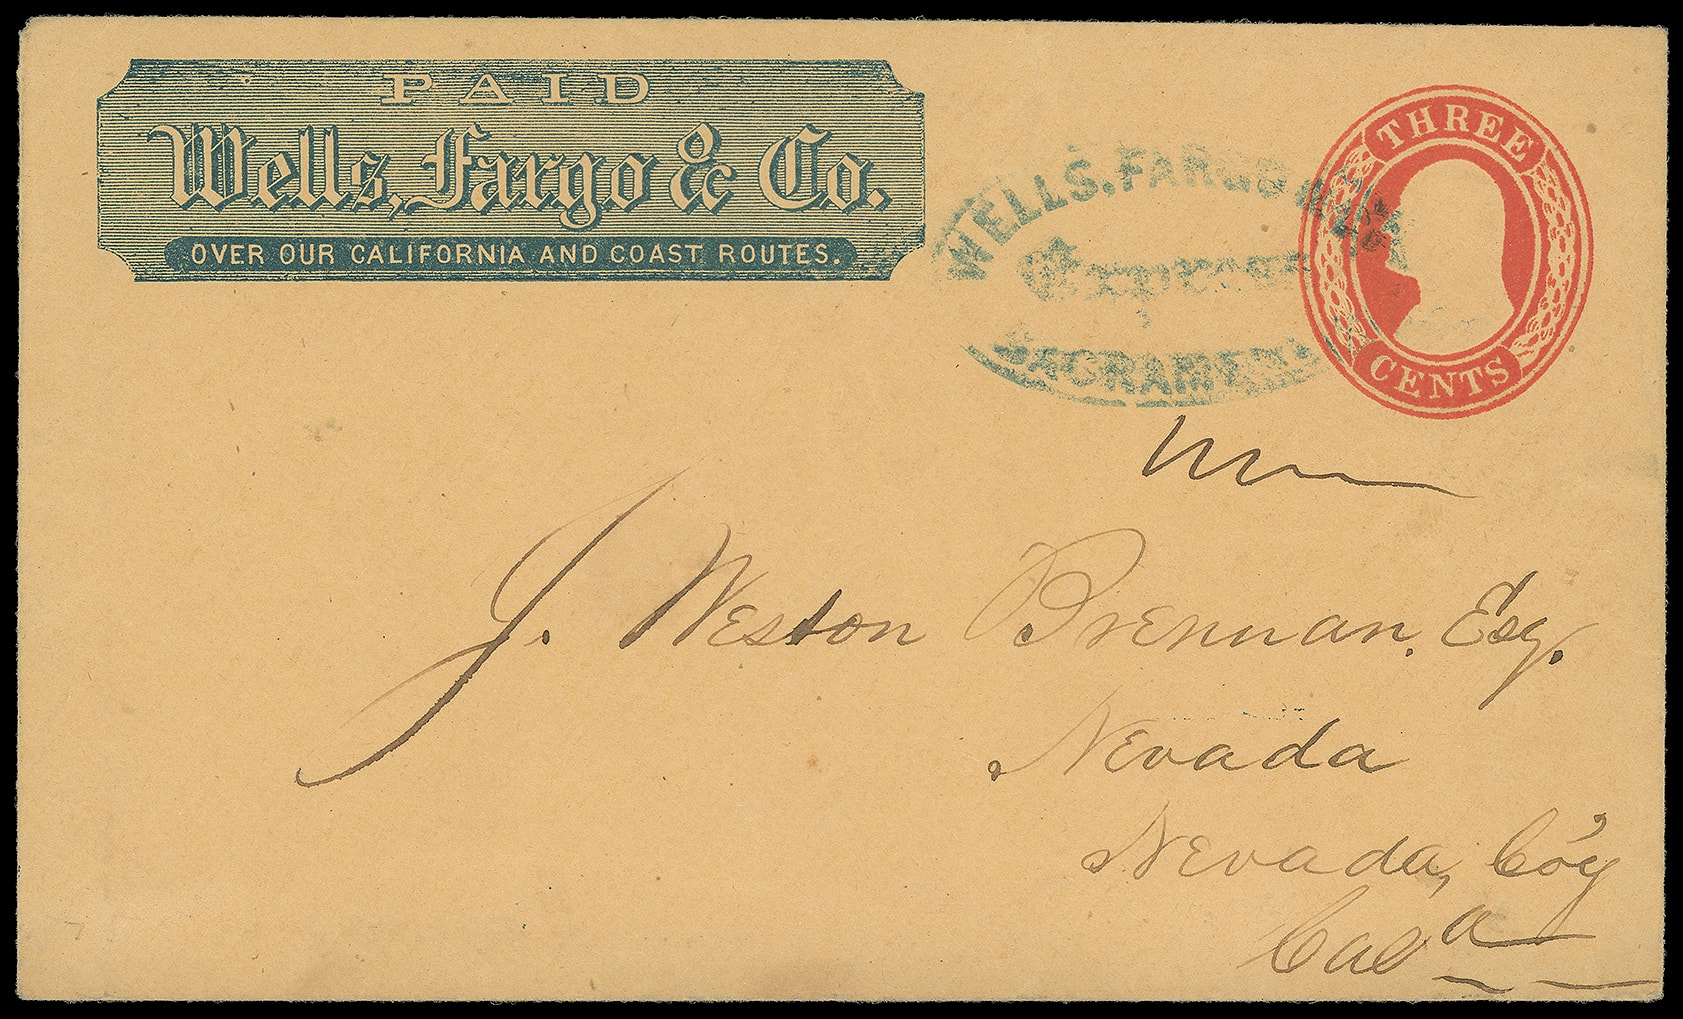 PAID
Wells, Fargo & Co.
OVER OUR CALIFORNIA AND COAST ROUTES.
WELLS. FARGO
Express
SACRAMENTO
THREE
CENTS
J. Weston Brennan. Esq.
Nevada
Nevada, Co'y
Cala